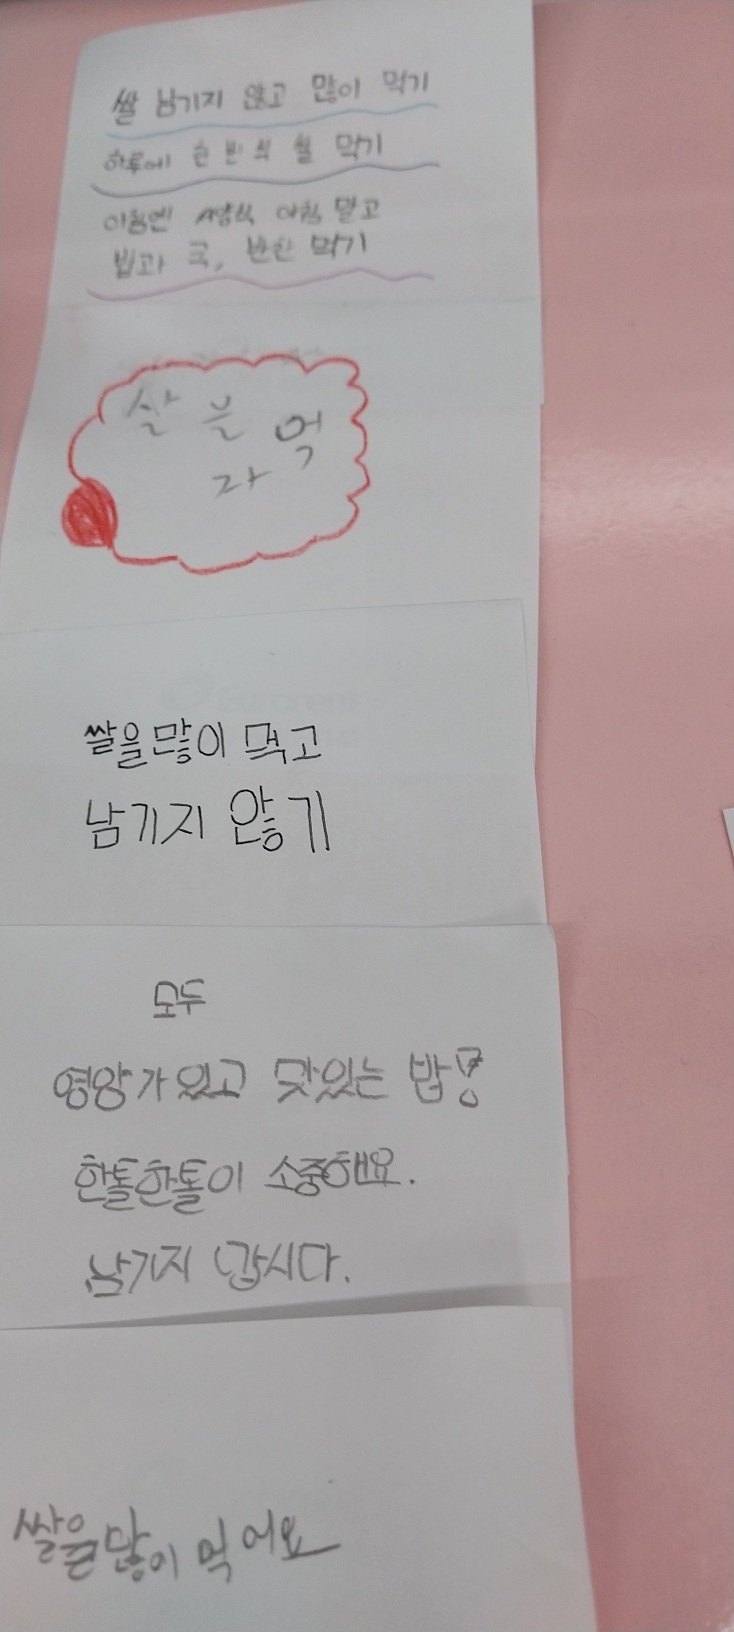 쌀 남기지 않고 많이 먹기
하루에 한 번 씩 쌀 먹기
아침엔 서양식 아침 말고
밥과 국, 반찬 먹기
살 을 먹
자
쌀을 많이 먹고
남기지 않기
모두
영양가 있고 맛있는 밥!
한톨한톨이 소중해요.
남기지 맙시다.
쌀을 많이 먹어요